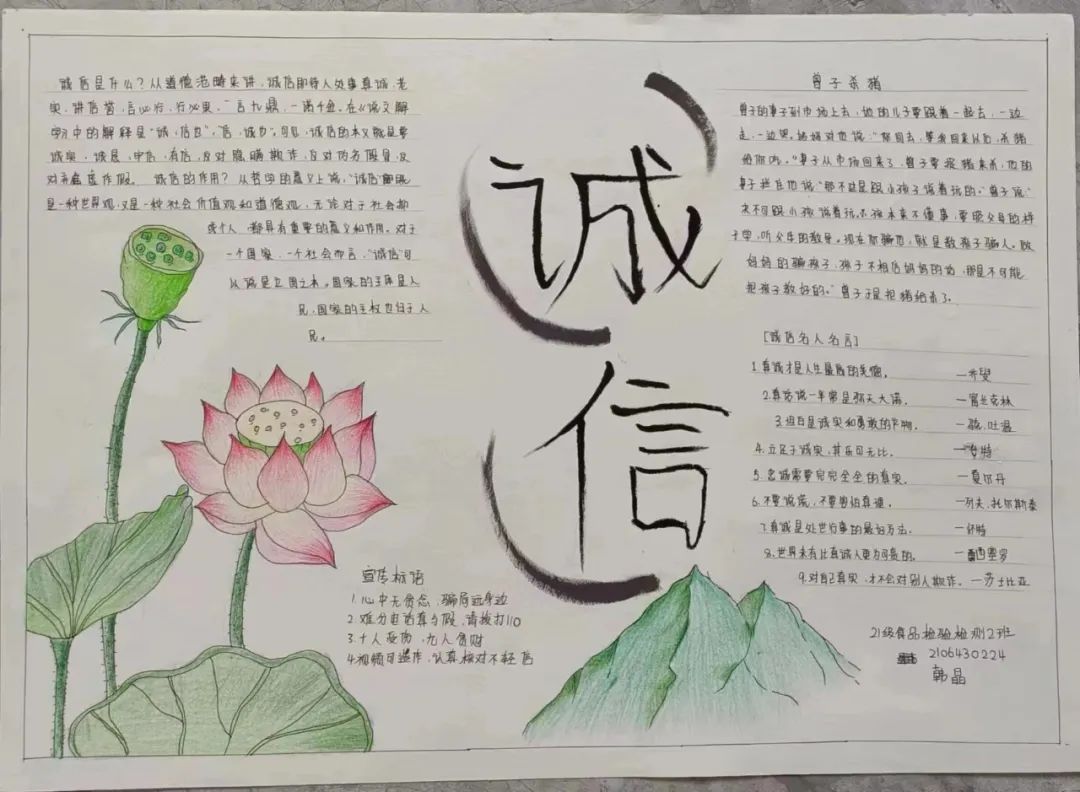 诚信是什么?从道德范畴来讲,诚信即待人处事真诚、老
实、讲信誉,言必行、行必果,一言九鼎,一诺千金。在《说文解
字》中的解释是"诚,信也","信,诚也"。可见,诚信的本义就是要
诚实、诚恳、守信、有信,反对隐瞒欺诈、反对伪劣假冒、反
对弄虚作假。 诚信的作用?从哲学的意义上说,"诚信"
是一种世界观,又是一种社会价值观和道德观,无论对于社会抑
或个人,都具有重要的意义和作用。对于
一个国家、一个社会而言,"诚信"可
以说是立国之本。国家的主体是人
民,国家的主权也归于人
民。
诚
信
宣传标语
1.心中无贪念,骗局远身边
2.难分电话真与假,请拨打110
3.十人受骗,九人贪财
4.视频可造作,认真核对不轻信
曾子杀猪
曾子的妻子到市场上去,她的儿子要跟着一起去,一边
走,一边哭。妈妈对他说:"你回去,等我回来以后,杀猪
给你吃。"妻子从市场回来了,曾子要捉猪来杀,他的
妻子拦住他说"那不过是跟小孩子说着玩的。"曾子说"
决不可跟小孩说着玩。小孩本来不懂事,要照父母的样
子学,听父母的教导。现在你骗他,就是教孩子骗人。做
妈妈的骗孩子,孩子不相信妈妈的话,那是不可能
把孩子教好的。"曾子于是把猪给杀了。
[诚信名人名言]
1.真诚才是人生最高的美德。 —乔叟
2.真话说一半常是弥天大谎。 —富兰克林
3.坦白是诚实和勇敢的产物。 —马克·吐温
4.立足于诚实,其乐可无比。
5.忠诚需要完完全全的真实。 —夏尔丹
6.不要说谎,不要害怕真理。 —列夫·托尔斯泰
7.真诚是处世行事的最好方法。
8.世界未有比真诚人更为可贵的。 —西塞罗
9.对自己真实,才不会对别人欺诈。 —莎士比亚
21级食品检验检测2班
2106430224
韩晶